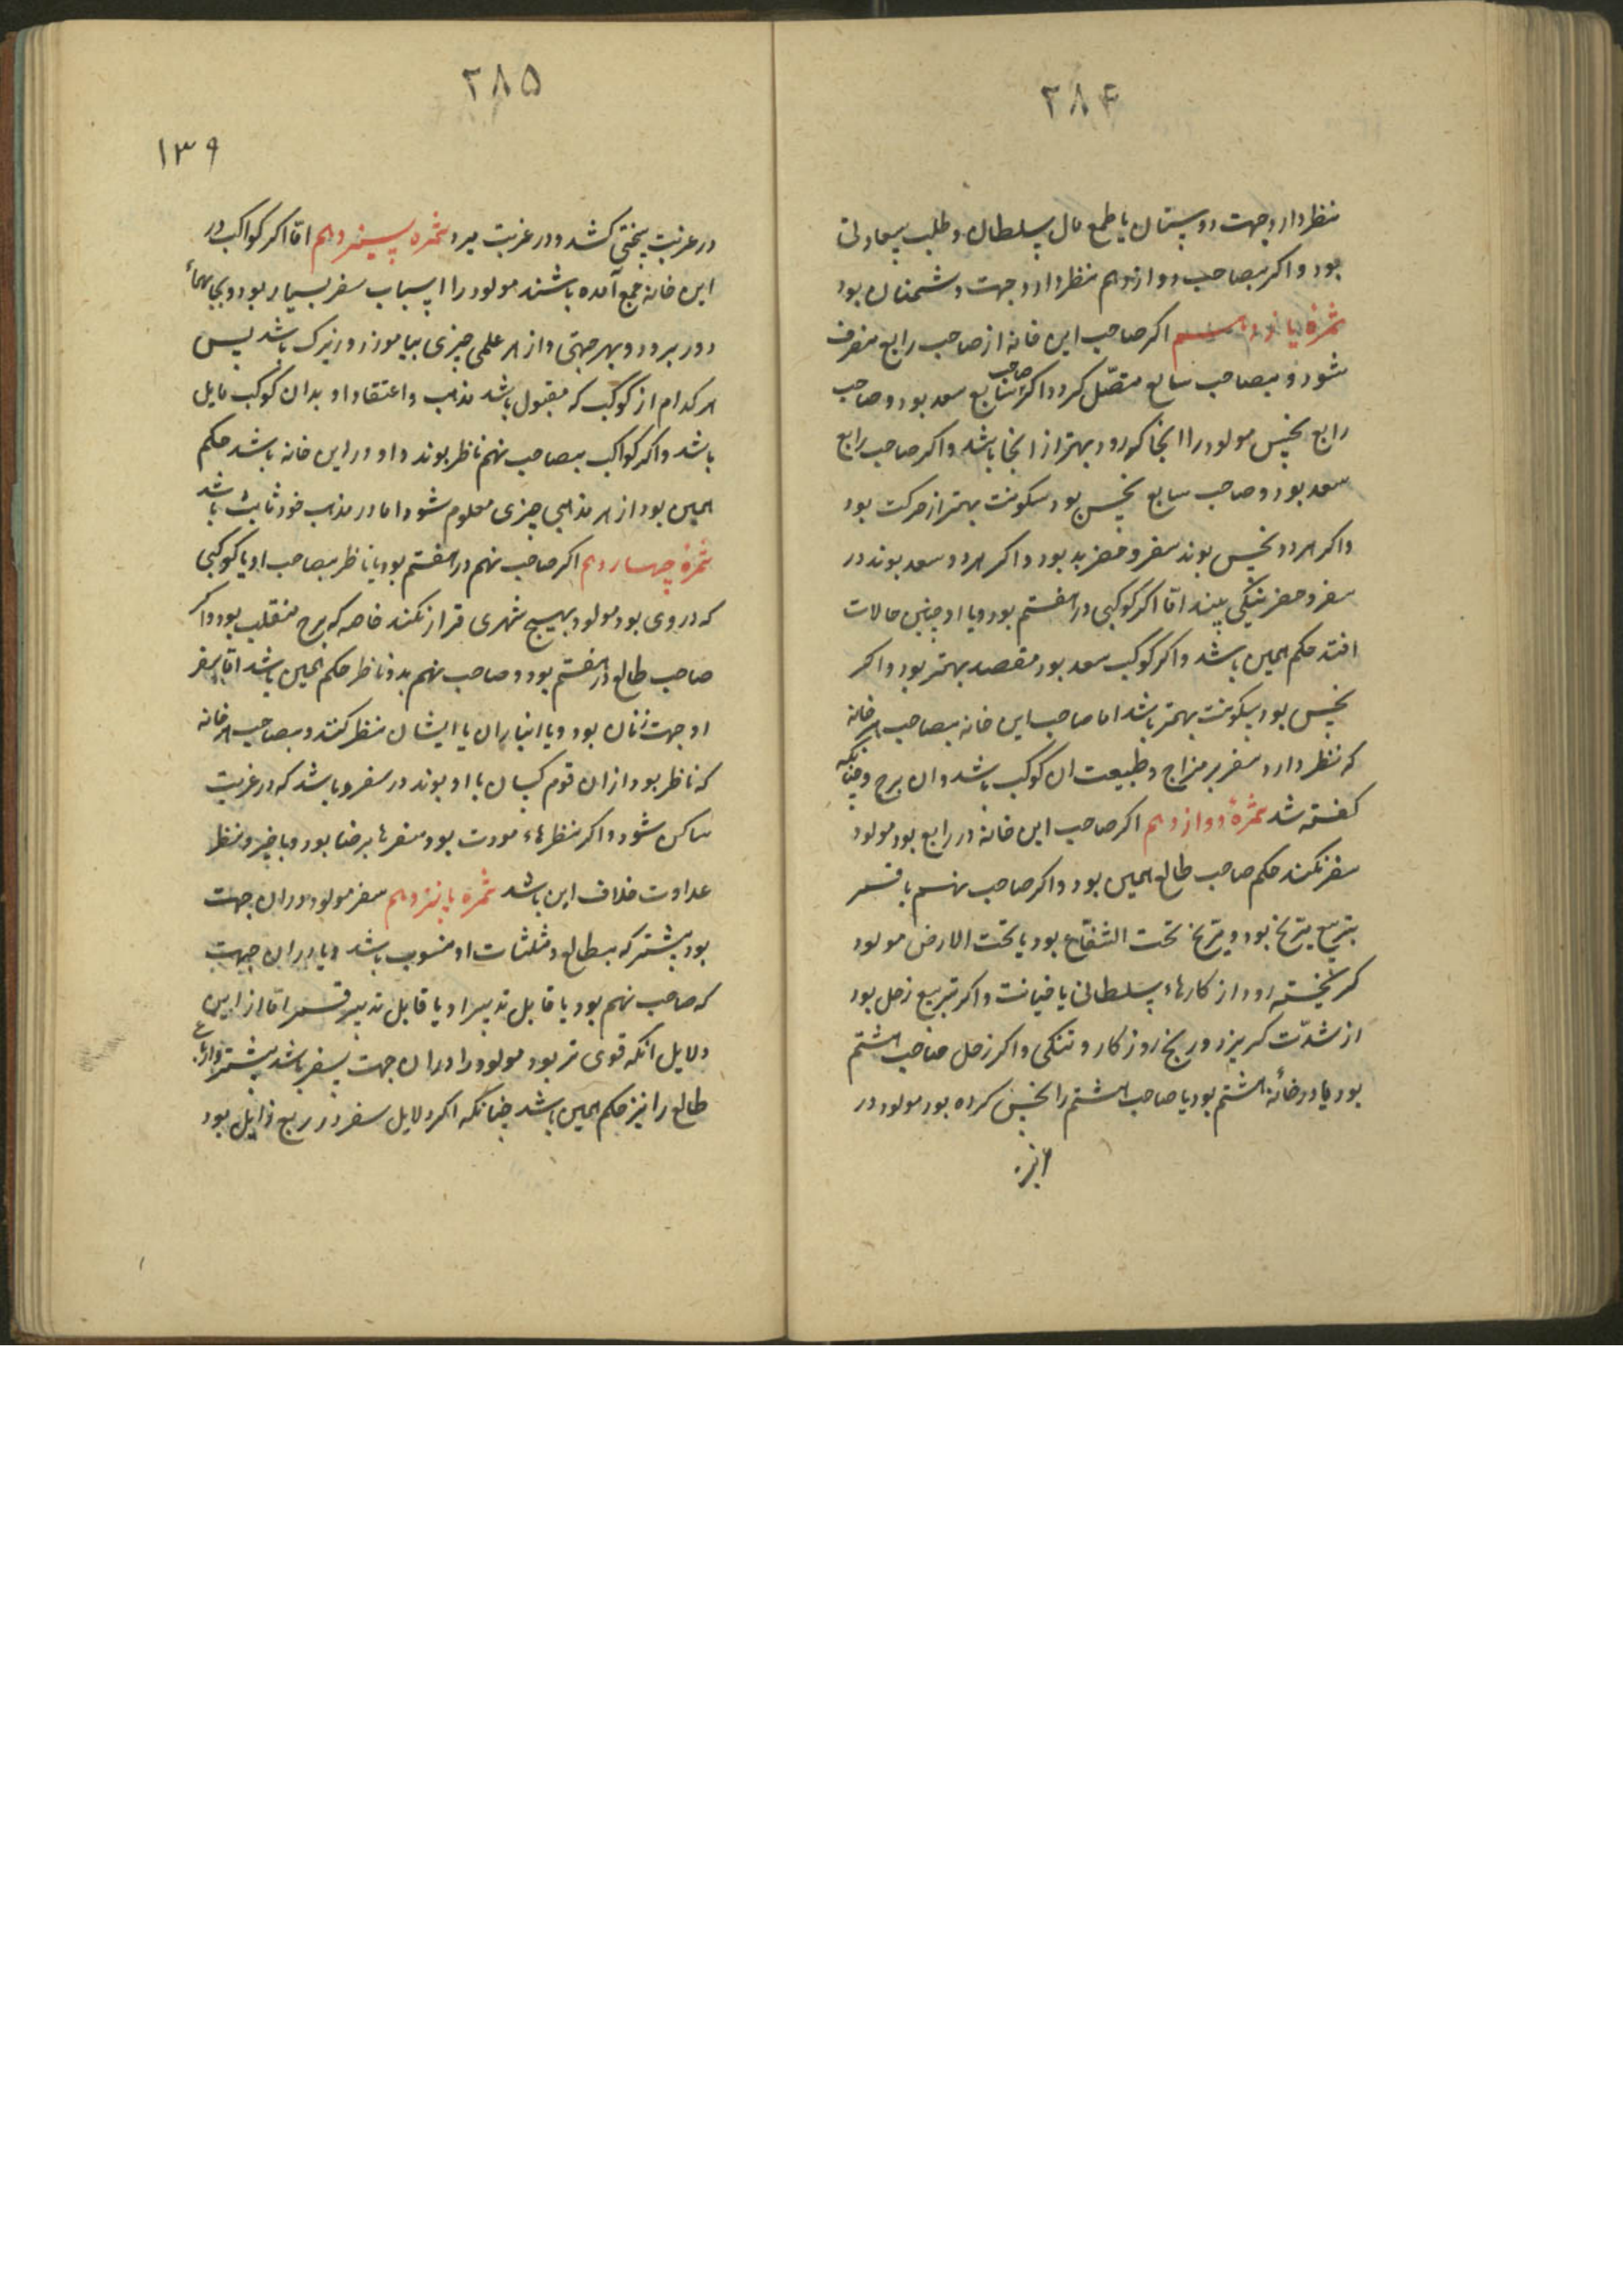 ۲۸۴
نظر دارد جهت دوستان یا طمع مال سلطان و طلب سعادتی
بود و اکر بصاحب دوازدهم نظر دارد جهت دشمنان بود
ثمرهٔ یازدهم اکر صاحب این خانه از صاحب رابع منصرف
شود و بصاحب سابع متصّل کردد اکر صاحب سابع سعد بود و صاحب
رابع نحس مولود را انجا کورود بهتر از انجا باشد و اکر صاحب رابع
سعد بود و صاحب سابع نحس بود سکونت بهتر از حرکت بود
و اکر هر دو نحس بوند سفر و حضر بد بود و اکر هر دو سعد بوند در
سفر و حضر نیکی بیند امّا اکر کوکبی در هفتم بود و یا او چنین حالات
افتد حکم همین باشد و اکر کوکب سعد بود مقصد بهتر بود و اکر
نحس بود سکونت بهتر باشد اما صاحب این خانه بصاحب هر خانه
که نظر دارد سفر بر مزاج و طبیعت ان کوکب باشد و ان برج و چنانکه
کفته شد ثمرهٔ دوازدهم اکر صاحب این خانه در رابع بود مولود
سفر نکند حکم صاحب طالع همین بود و اکر صاحب نهم با قمر
بتربیع مریخ بود و مریخ تحت الشعاع بود یا تحت الارض مولود
کریخته رود از کارهاء سلطانی یا خیانت و اکر تربیع زحل بود
از شدّت کریزد و رنج روزکار و تنکی و اکر زحل صاحب هشتم
بود یا در خانهٔ هشتم بود یا صاحب هشتم را نحس کرده بود مولود در
۲۸۵
۱۳۹
در غربت سختی کشد و در غربت میرد ثمره سیزدهم امّا اکر کواکب در
این خانه جمع آمده باشند مولود را اسباب سفر بسیار بود و بجایهاء
دور برود و بهر جهتی و از هر علمی چیزی بیاموزد و زیرک باشد پس
هر کدام از کوکب که مقبول باشد مذهب و اعتقاد او بدان کوکب مایل
باشد و اکر کواکب بصاحب نهم ناظر بوند و او در این خانه باشد حکم
همین بود از هر مذهبی چیزی معلوم شود اما در مذهب خود ثابت باشد
ثمرهٔ چهاردهم اکر صاحب نهم در هفتم بود یا ناظر بصاحب او یا کوکبی
که در وی بود مولود بهیچ شهری قرار نکند خاصه که برج منقلب بود و اکر
صاحب طالع در هفتم بود و صاحب نهم بدو ناظر حکم همین باشد امّا سفر
او جهت زنان بود و یا انبازان یا ایشان نظر کنند و بصاحب هر خانه
که ناظر بود از ان قوم کسان با او بوند در سفر و باشد که در غربت
ساکن شود و اکر نظرهاء مودت بود سفرها برضا بود و با خیر و نظر
عداوت خلاف این باشد ثمره پانزدهم سفر مولود در ان جهت
بود بیشتر که بطالع و مثلثات او منسوب باشد و یا در ان جهت
که صاحب نهم بود یا قابل تدبیر او یا قابل تدبیر قمر امّا از این
دلایل انکه قوی تر بود مولود را در ان جهت سفر باشد بیشتر و ارباع
طالع را نیز حکم همین باشد چنانکه اکر دلایل سفر در ربع زایل بود